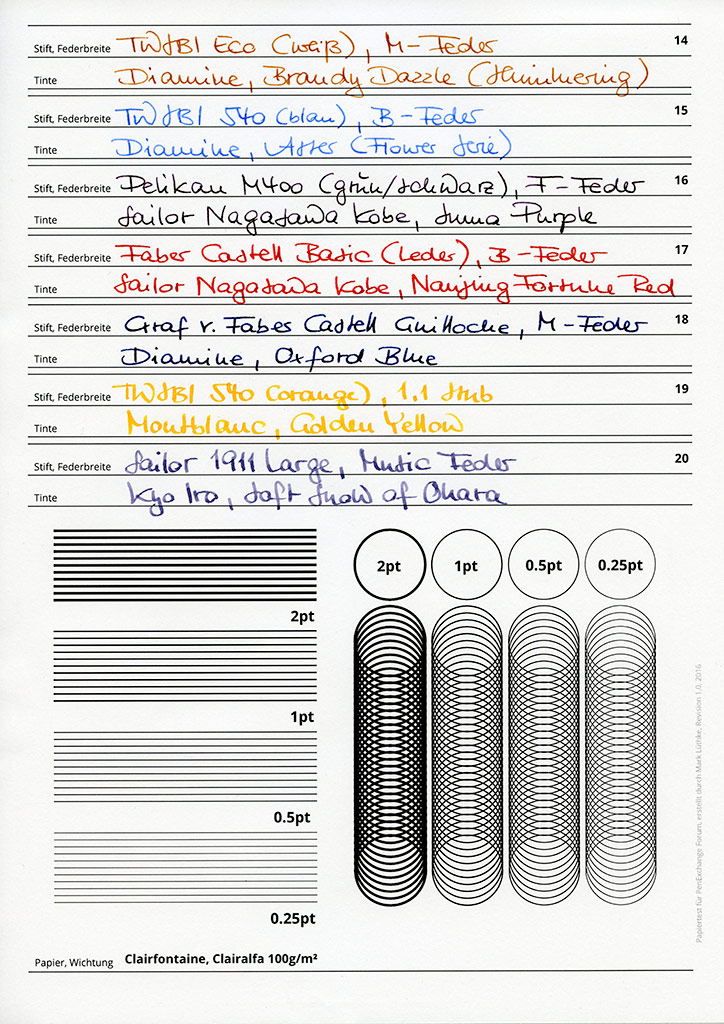 Stift, Federbreite TWSBI Eco (weiß), M-Feder 14
Tinte Diamine, Brandy Dazzle (Shimmering)
Stift, Federbreite TWSBI 540 (blau), B-Feder 15
Tinte Diamine, Aster (Flower Serie)
Stift, Federbreite Pelikan M400 (grün/schwarz), F-Feder 16
Tinte Sailor Nagasawa Kobe, Suma Purple
Stift, Federbreite Faber Castell Basic (Leder), B-Feder 17
Tinte Sailor Nagasawa Kobe, Nanjing Fortune Red
Stift, Federbreite Graf v. Faber Castell Guilloche, M-Feder 18
Tinte Diamine, Oxford Blue
Stift, Federbreite TWSBI 540 (orange), 1.1 Stub 19
Tinte Montblanc, Golden Yellow
Stift, Federbreite Sailor 1911 Large, Music Feder 20
Tinte Kyo Iro, Soft Snow of Ohara
2pt 1pt 0.5pt 0.25pt
2pt
1pt
0.5pt
0.25pt
Papiertest für PenExchange Forum, erstellt durch Mark Lüthke, Revision 1.0, 2016
Papier, Wichtung Clairfontaine, Clairalfa 100g/m²